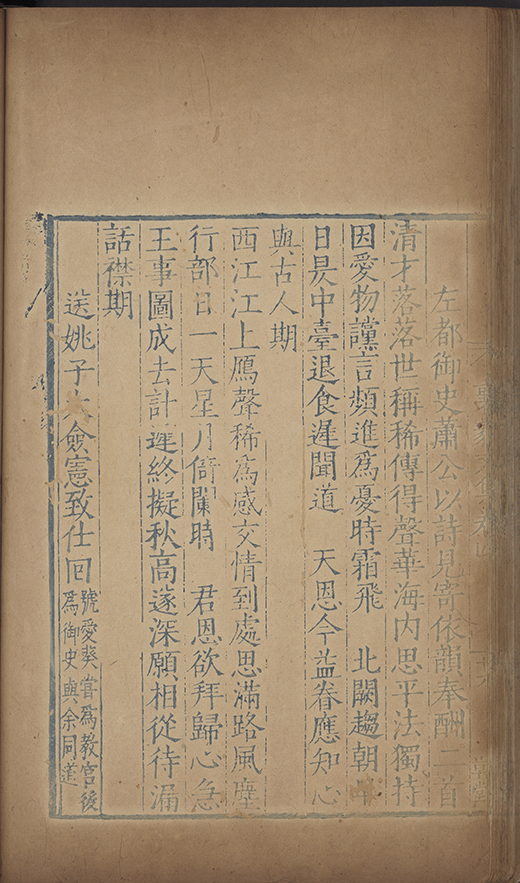 左都御史蕭公以詩見寄依韻奉酬二首
清才落落世稱稀傳得聲華海内思平法獨持
因愛物讜言頻進爲憂時霜飛 北闕趨朝早
日昃中臺退食遲聞道 天恩今益眷應知心
與古人期
西江江上鴈聲稀為感交情到處思滿路風塵
行部日一天星月倚闌時 君恩欲拜歸心急
王事圖成去計遲終擬秋高遂深願相從待漏
話襟期
送姚子大僉憲致仕回
號愛葵嘗爲教官後
爲御史與余同道